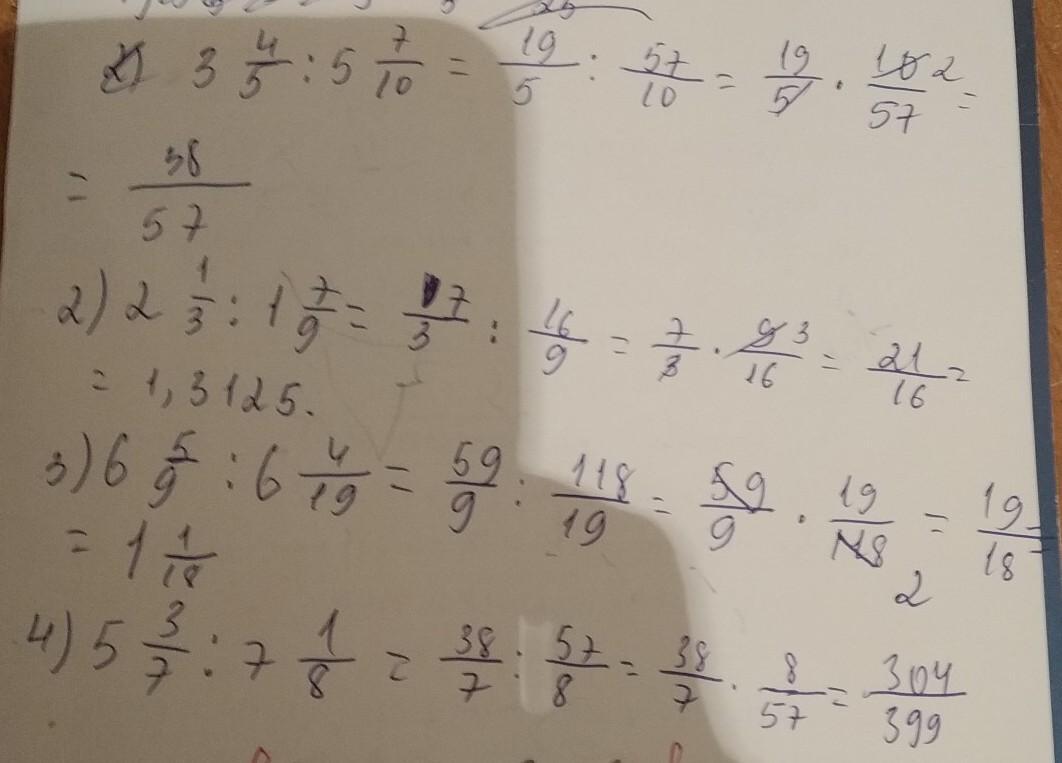 1) 3 4/5 : 5 7/10 = 19/5 : 57/10 = 19/5 · 10/57 2 =
= 38/57
2) 2 1/3 : 1 7/9 = 7/3 : 16/9 = 7/3 · 9/16 3 = 21/16 =
= 1,3125.
3) 6 5/9 : 6 4/19 = 59/9 : 118/19 = 59/9 · 19/118 2 = 19/18 =
= 1 1/18
4) 5 3/7 : 7 1/8 = 38/7 : 57/8 = 38/7 · 8/57 = 304/399